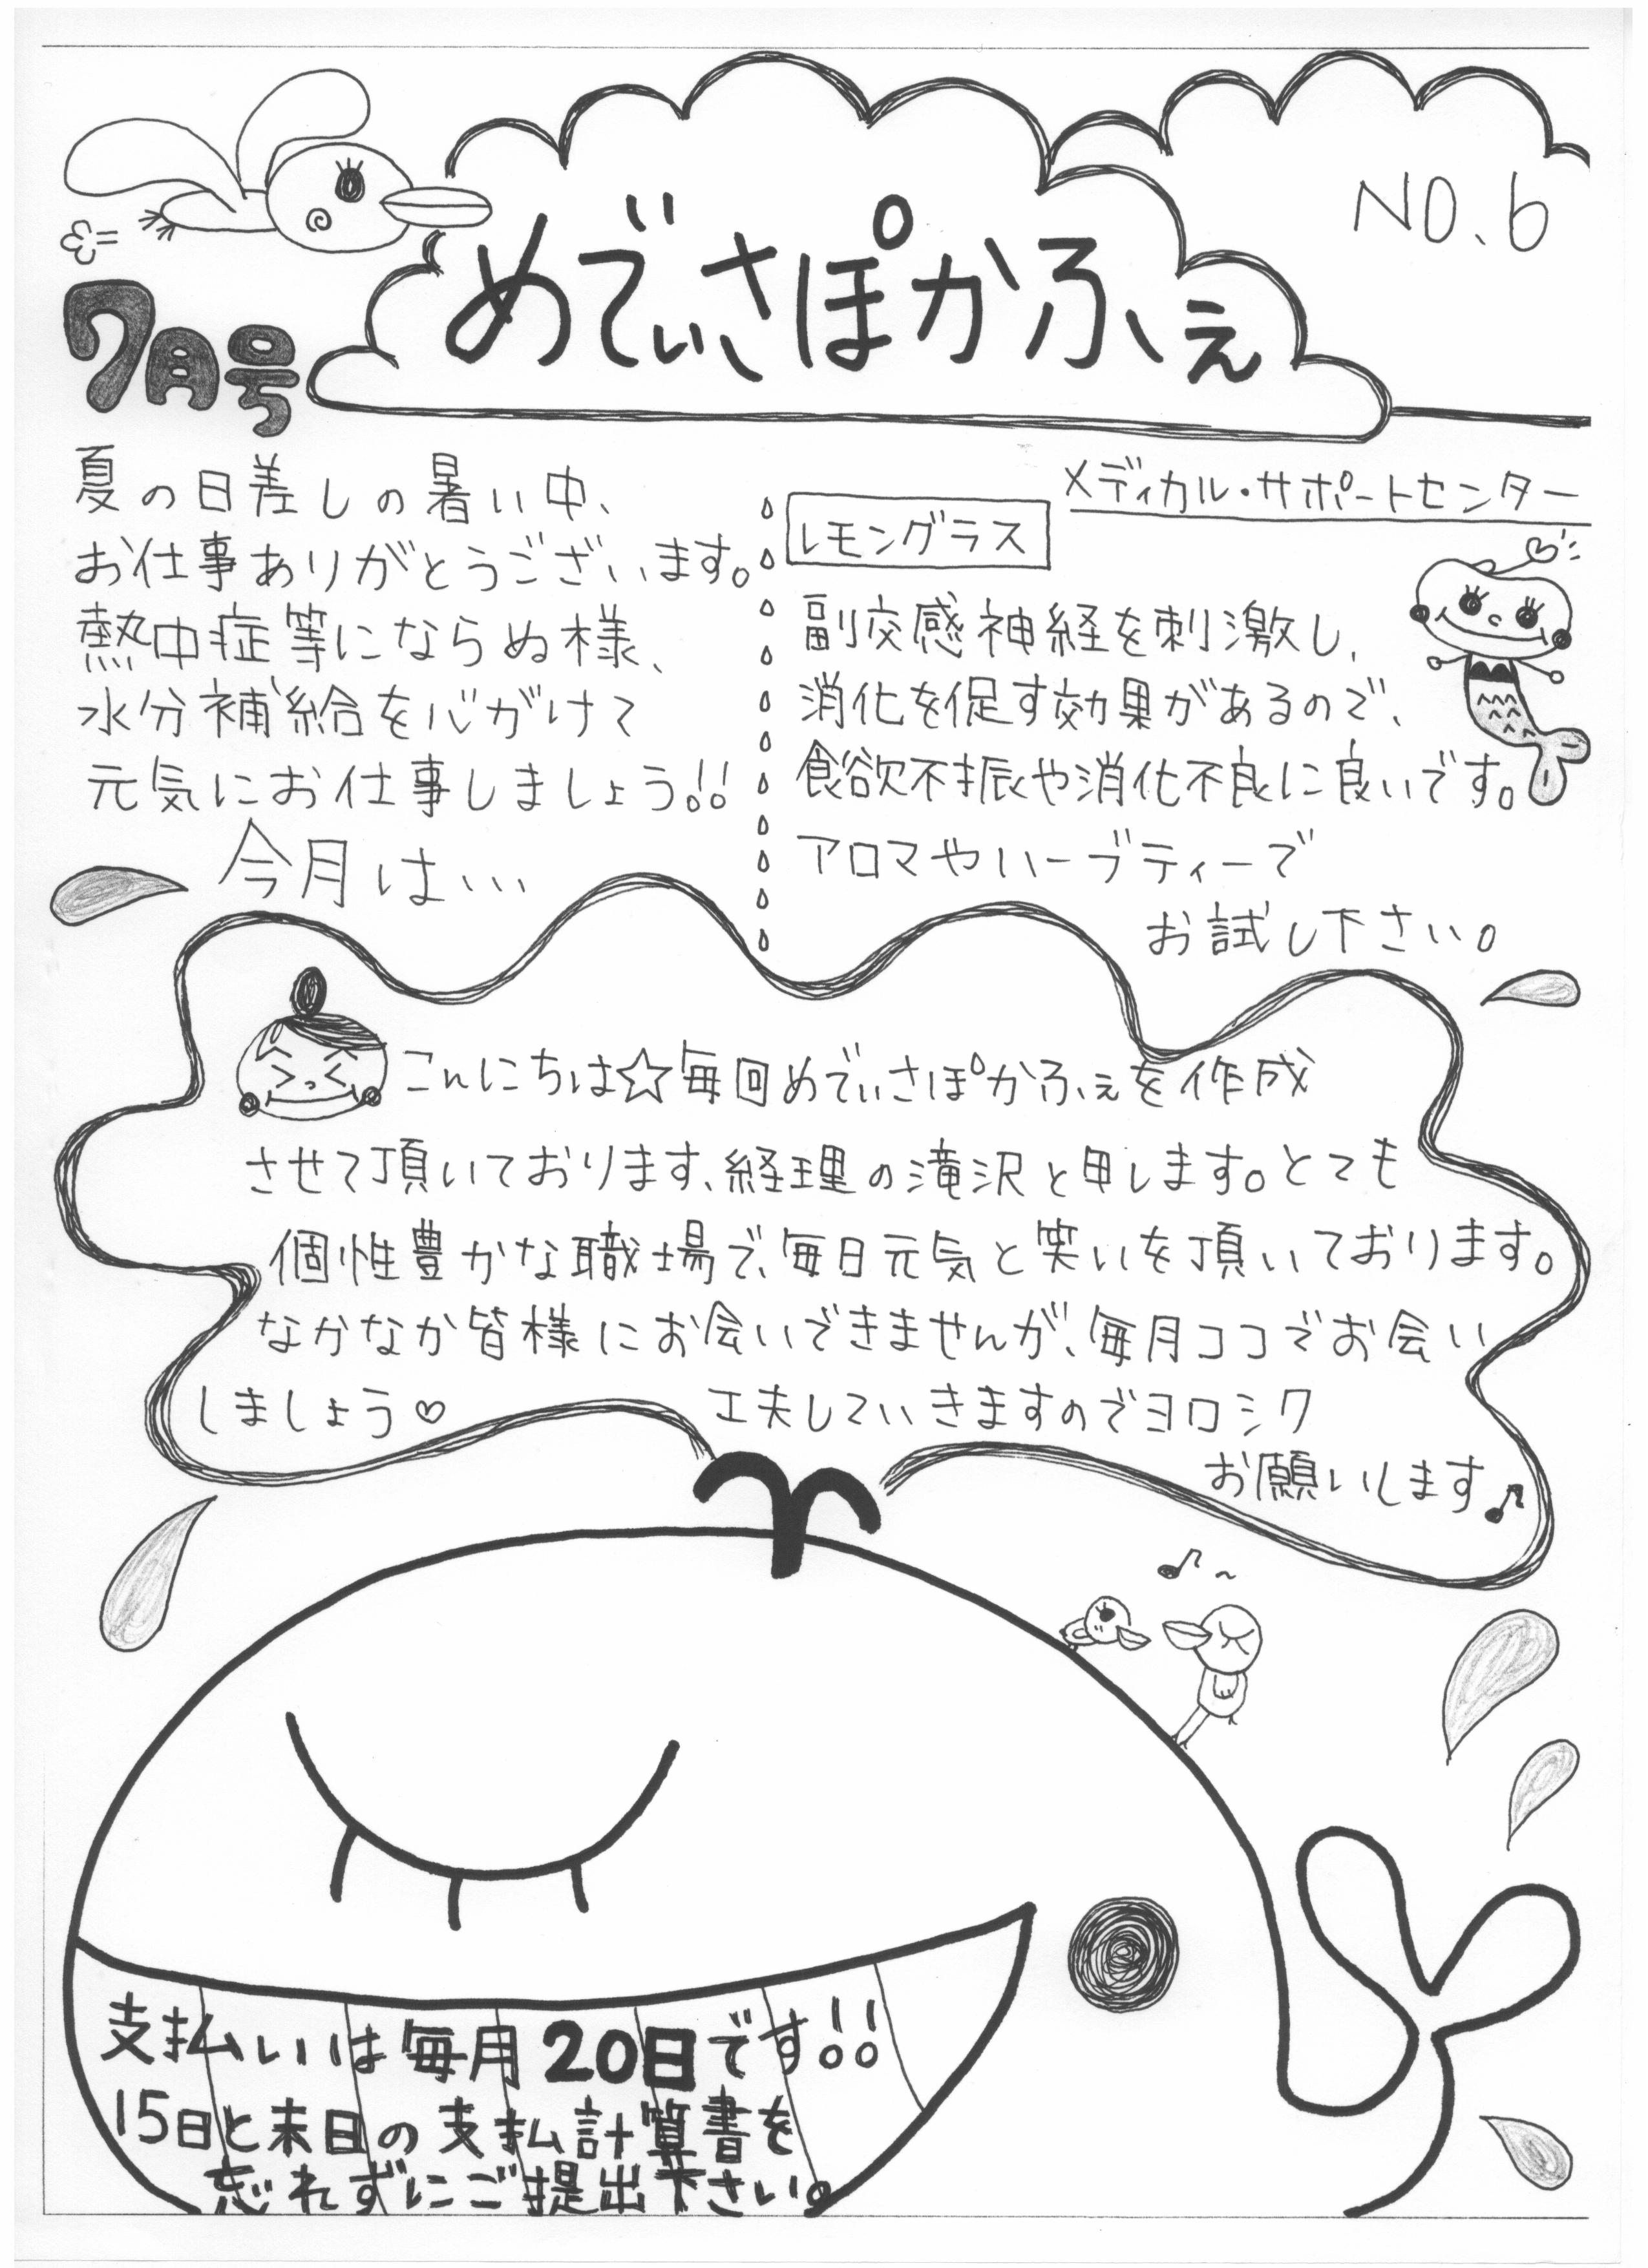 NO.6
めでぃさぽかふぇ
7月号
メディカル・サポートセンター
夏の日差しの暑い中、
お仕事ありがとうございます。
熱中症等にならぬ様、
水分補給を心がけて
元気にお仕事しましょう!!
今月は…
レモングラス
副交感神経を刺激し、
消化を促す効果があるので、
食欲不振や消化不良に良いです。
アロマやハーブティーで
お試し下さい。
こんにちは☆毎回めでぃさぽかふぇを作成
させて頂いております、経理の滝沢と申します。とても
個性豊かな職場で、毎日元気と笑いを頂いております。
なかなか皆様にお会いできませんが、毎月ココでお会い
しましょう♡ 工夫していきますのでヨロシク
お願いします♪
支払いは毎月20日です!!
15日と末日の支払計算書を
忘れずにご提出下さい。